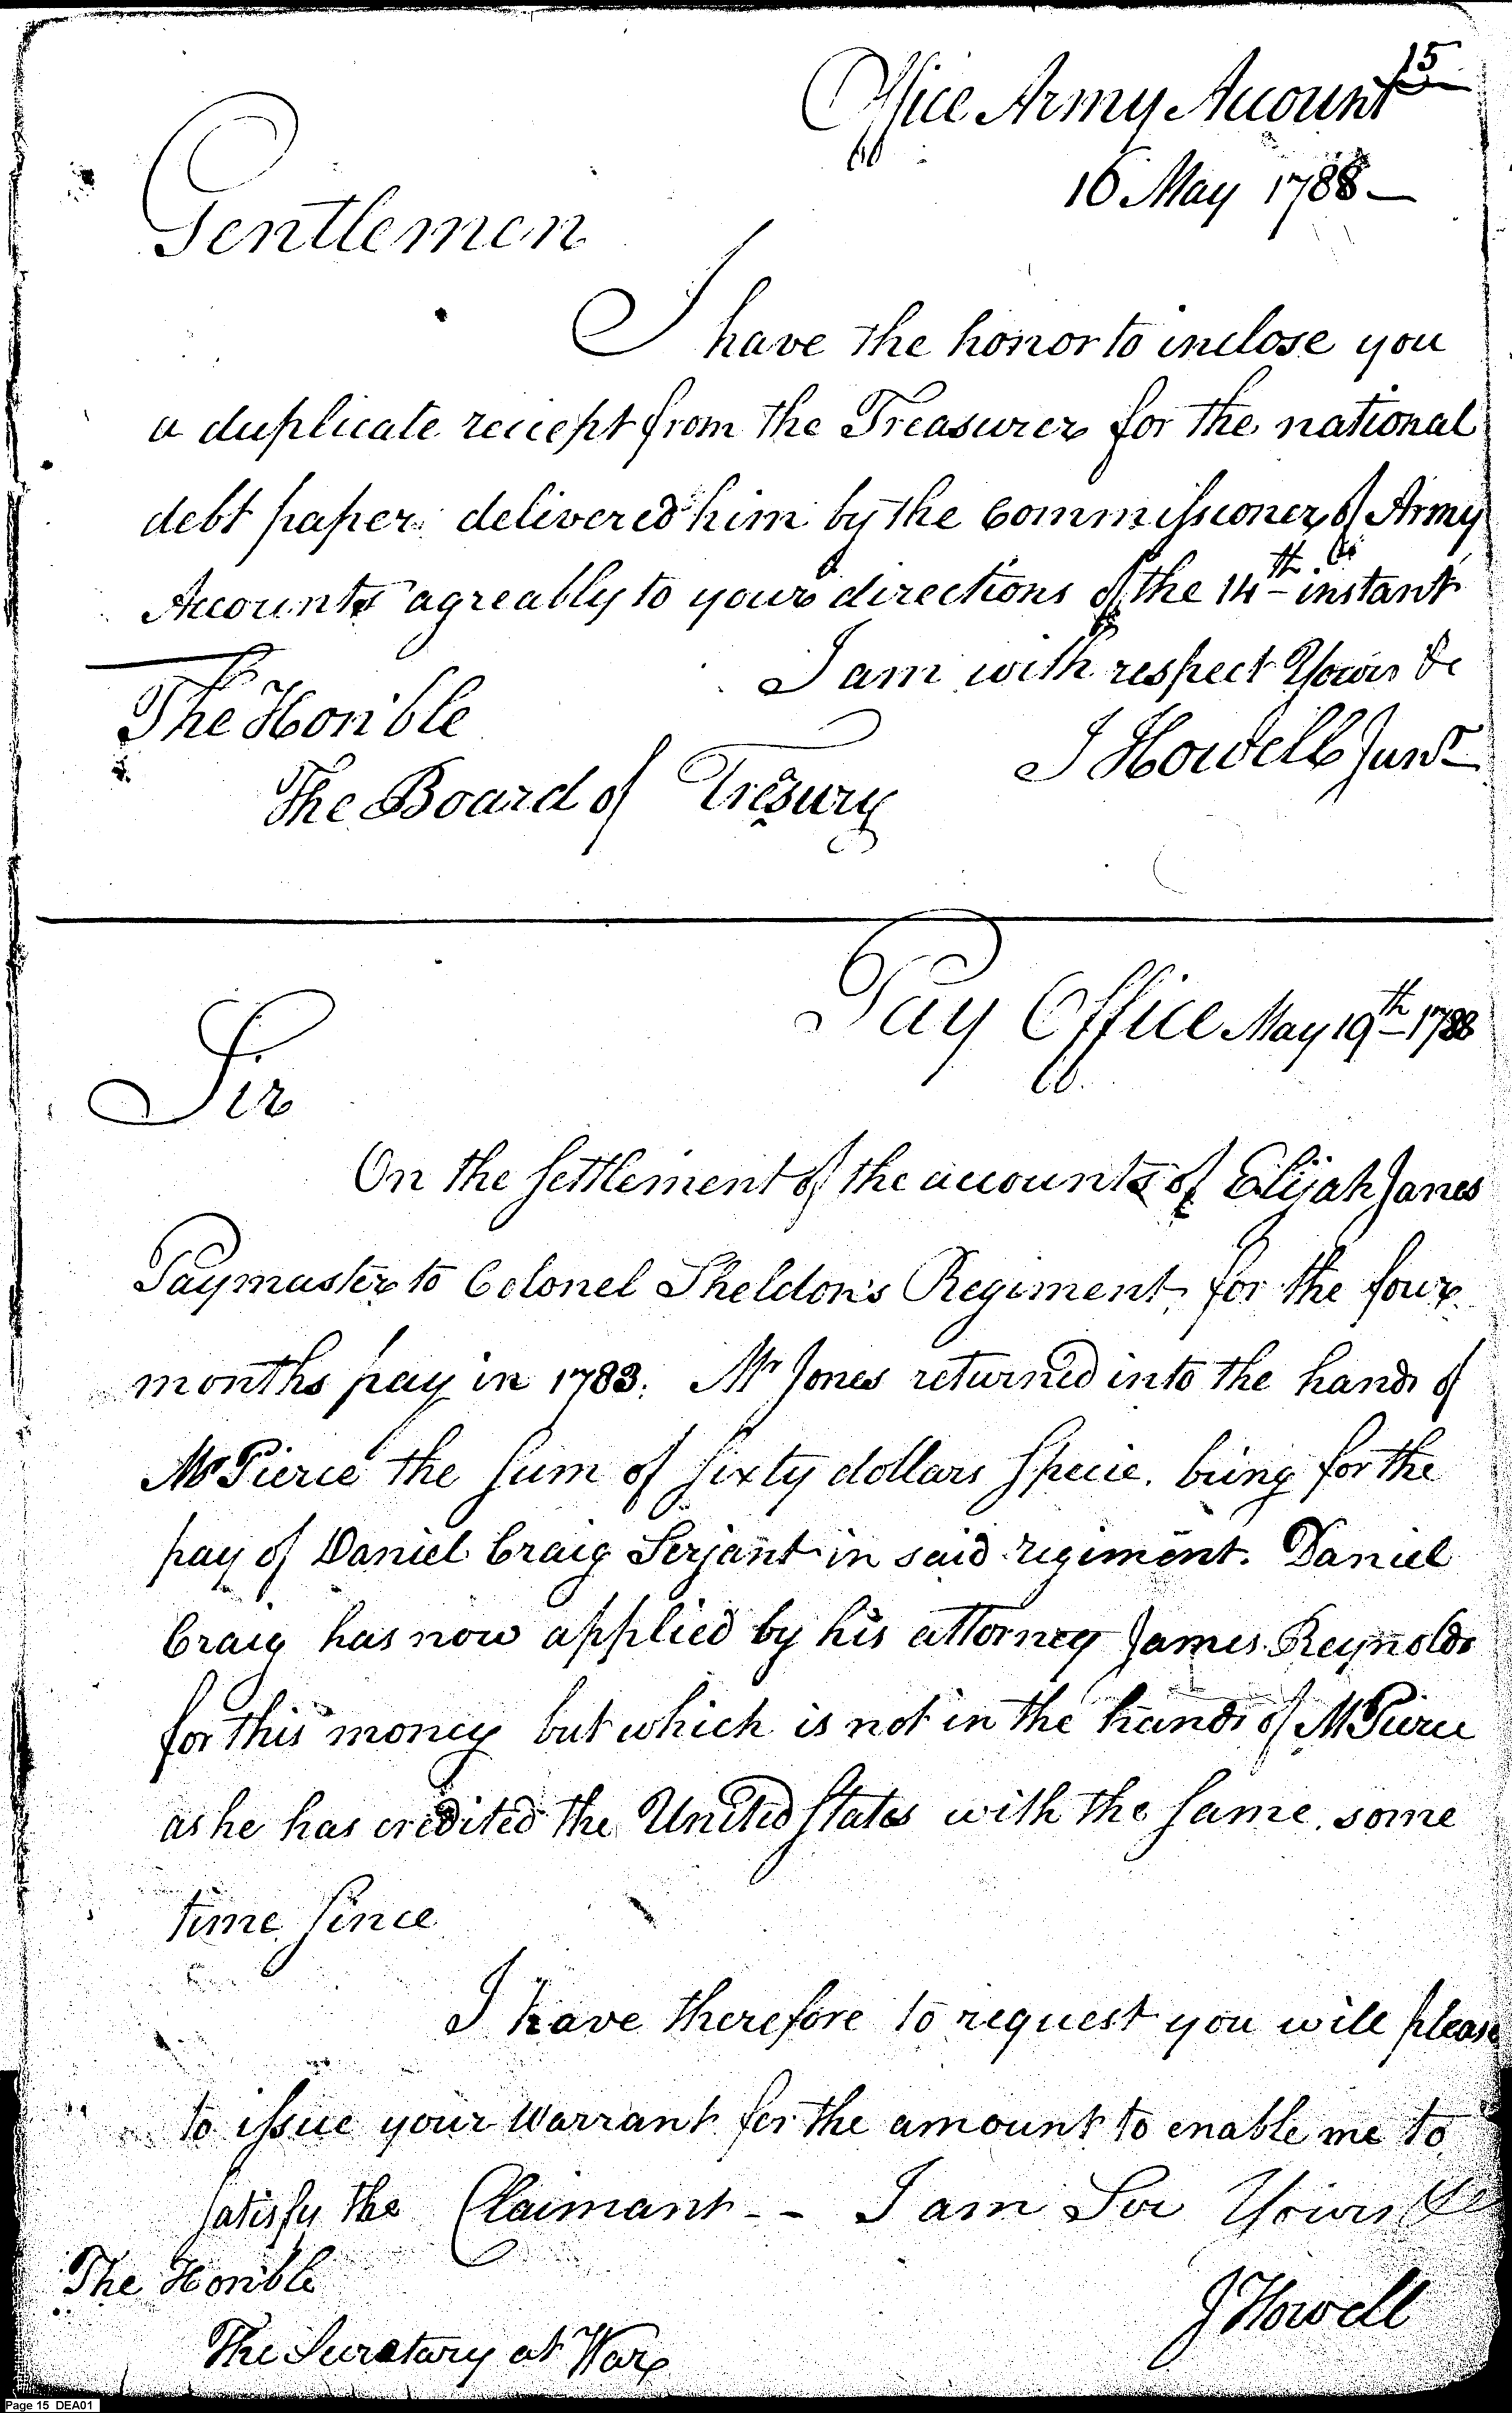 15
Office Army Account
16 May 1788 —
Gentlemen
I have the honor to inclose you
a duplicate reciept from the Treasurer for the national
debt paper delivered him by the Commissioner of Army
Accounts agreably to your directions of the 14th instant
I am with respect Yours &c
The Honble
J Howell Junr
The Board of Tresury
Pay Office May 19th 1788
Sir
On the settlement of the accounts of Elijah Janes
Paymaster to Colonel Sheldon's Regiment for the four
months pay in 1783. Mr Jones returned into the hands of
Mr Pierce the sum of sixty dollars specie. being for the
pay of Daniel Craig Serjant in said regiment. Daniel
Craig has now applied by his attorney James Reynolds
for this money but which is not in the hands of Mr Pierce
as he has credited the United States with the same some
time since
I have therefore to request you will please
to issue your Warrant for the amount to enable me to
satisfy the Claimant -- I am Sir Yours &c
The Honble
J Howell
The Secratary at War
Page 15 DEA01